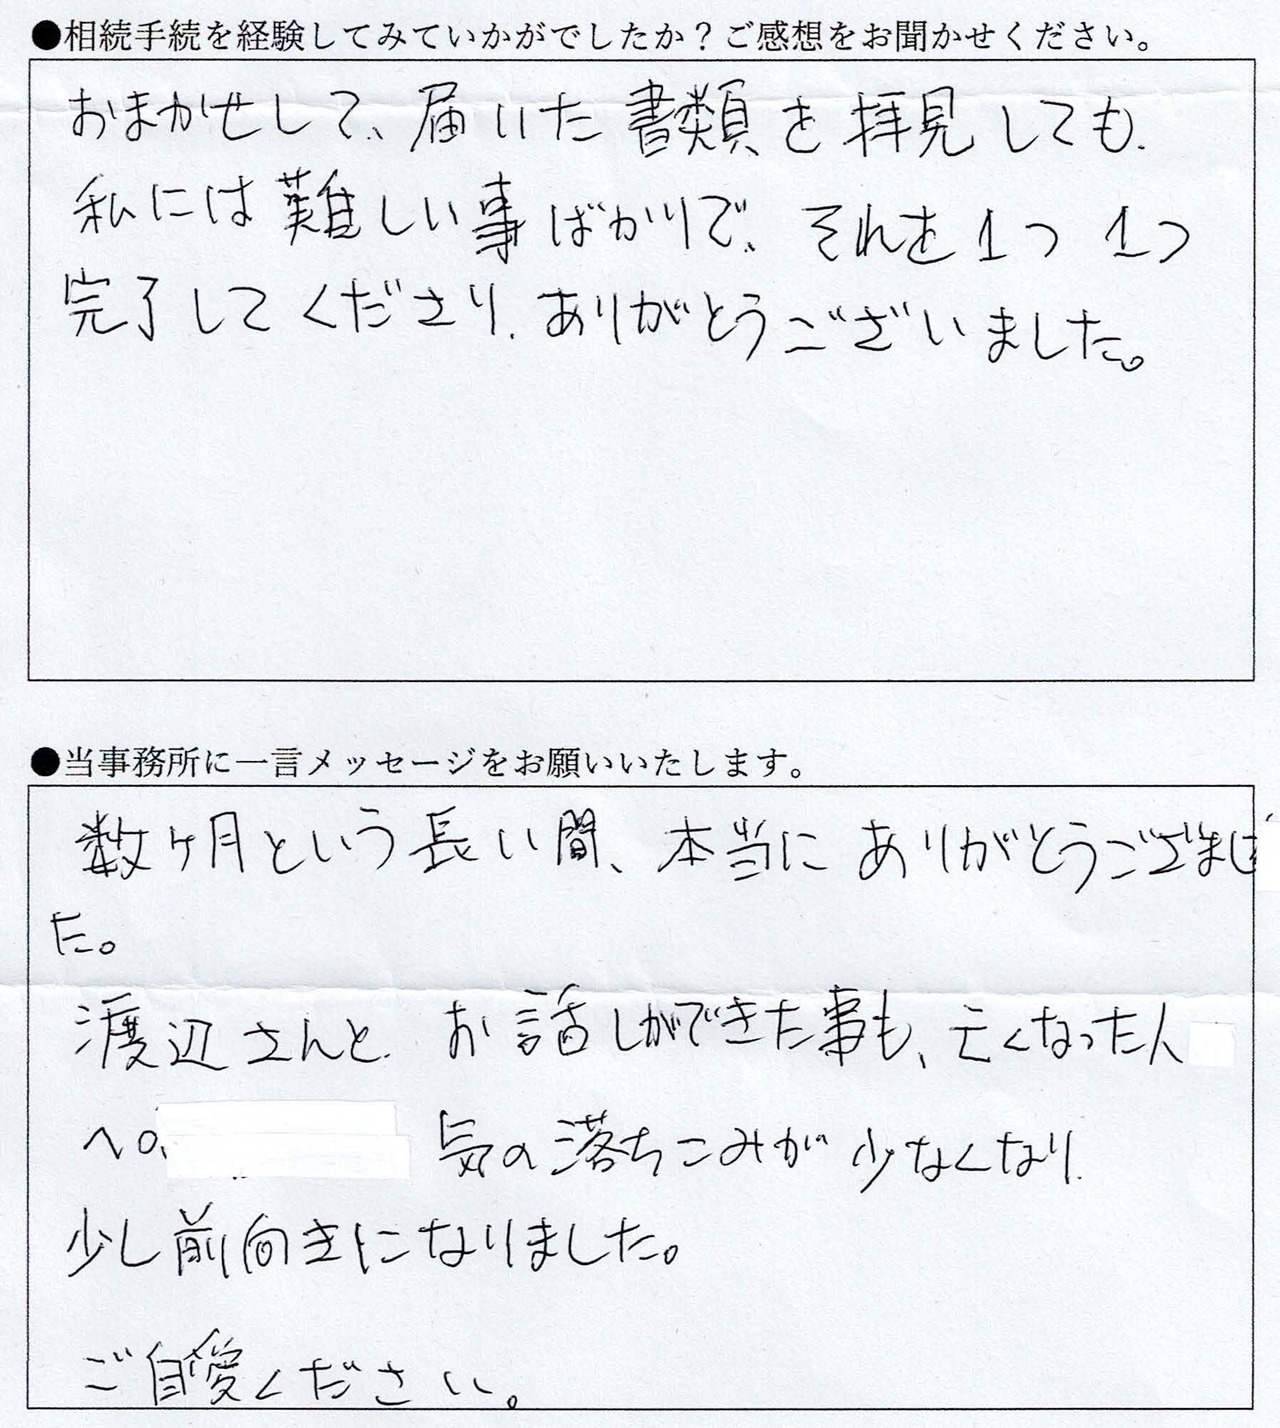 ●相続手続を経験してみていかがでしたか?ご感想をお聞かせください。
おまかせして、届いた書類を拝見しても、
私には難しい事ばかりで、それを1つ1つ
完了してくださり、ありがとうございました。
●当事務所に一言メッセージをお願いいたします。
数ヶ月という長い間、本当にありがとうござまし
た。
渡辺さんと、お話しができた事も、亡くなった人
への 気の落ちこみが少なくなり、
少し前向きになりました。
ご自愛ください。